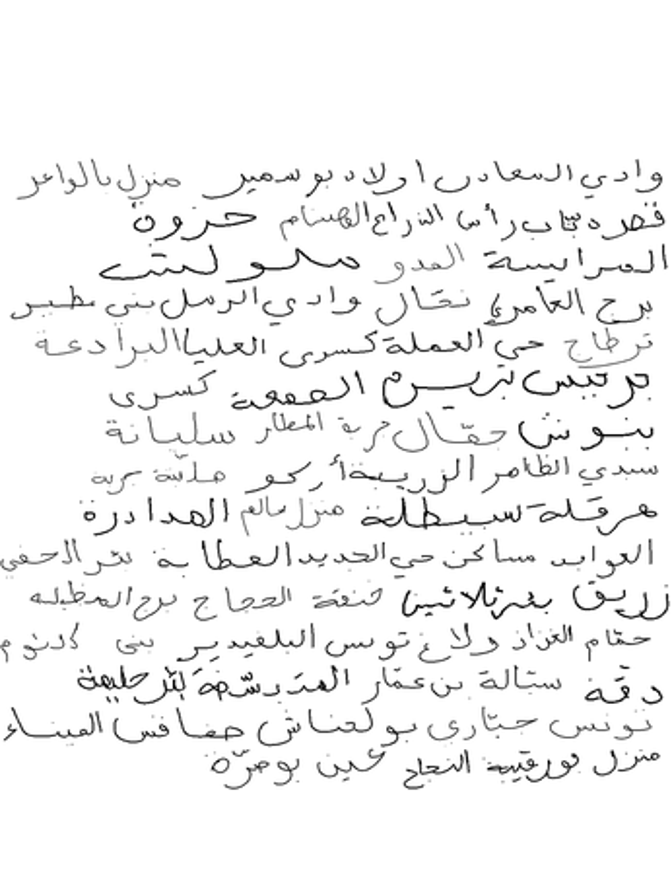 وادي السعادى اولاد بوسمير منزل بالواعر
قصره بتاب رأس الذراع الهشام حزوة
المرايسة العدو ملوليش
برج العامري نحّال وادي الرمل بني مطير
قرطاج حي العملة كسرى العليا البرادعة
برج السمعة كسرى
بنوش حقّال خربة المطار سليانة
سيدي الظاهر الزريبة أركو
هرقلة سبيطلة منزل سالم الهدادرة
العوابد مساكن حي الجديد العطابة
زريق بئر ثلاثين خنقة الحجاج
حمّام الغزاز تونس البلفيدير بني كلثوم
دقة ستالة بن عمّار المتبسّطة بئر حليمة
تونس جبّاري بولحناش صفاقس الميناء
منزل بورقيبة النجاح عين بوضرّة